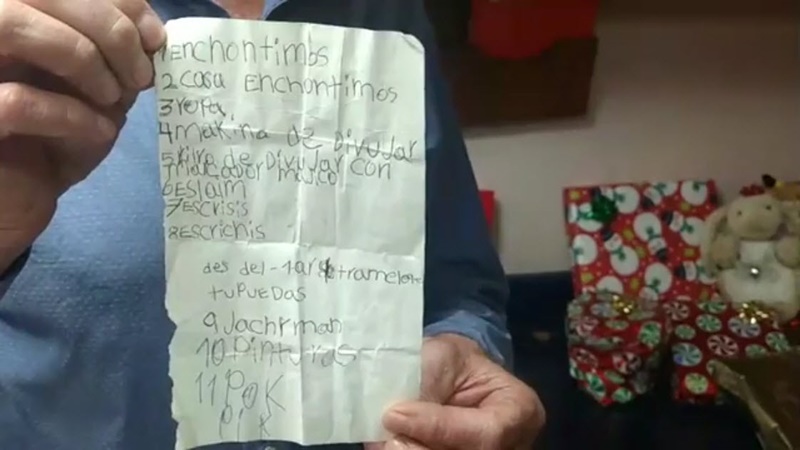 1 Enchontimbs
2 casa Enchontimes
3 ropa
4 makina de Divujar
5 livro de Divujar con
Marcador májico
6 Eslaim
7 Escrisis
8 Escrichis
des del-1 ar
tu PUEDAS
9 Jachrman
10 Pinturas
11 Pok
Pik